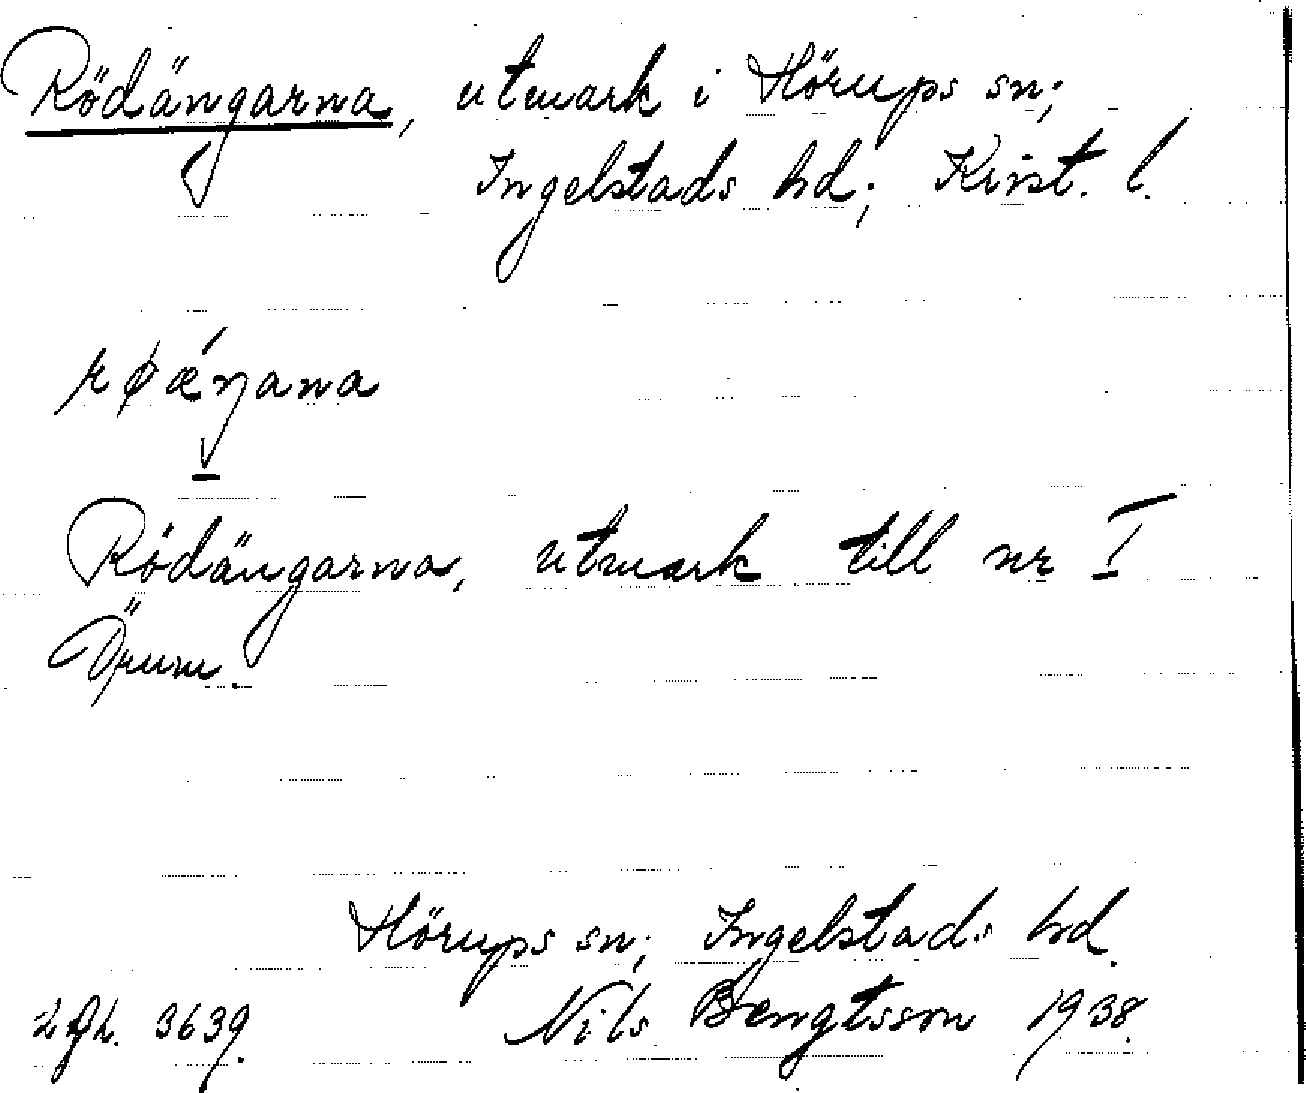 Rödängarna, utmark i Hörups sn;
Ingelstads hd; Krist. l.
røǽŋana
Rödängarna, utmark till nr I
Örum.
Hörups sn; Ingelstads hd.
Nils Bengtsson 1938.
3639.